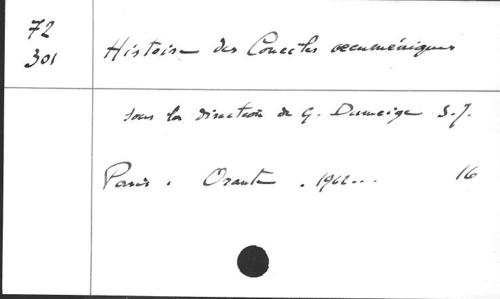 72
301
Histoire des Conciles œcuméniques
sous la direction de G. Dumeige S.J.
Paris. Orante. 1962...
16